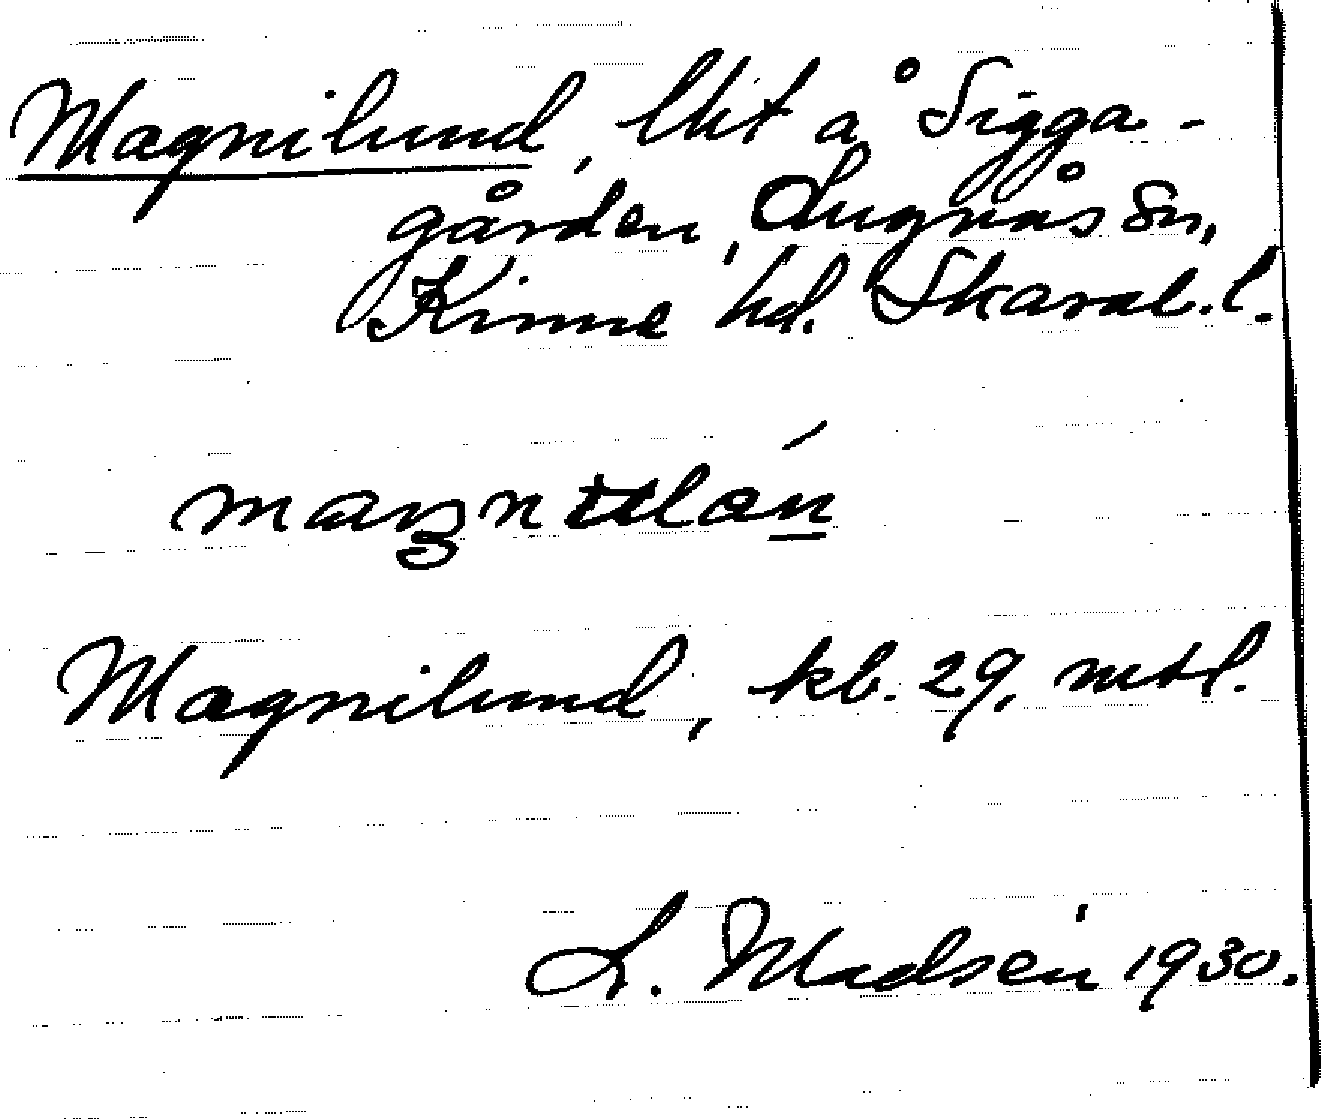 Magnilund, lht å Sigga-
gården, Lugnås sn,
Kinne hd. Skarab. l.
Magnilund, kb. 29, mtl.
L. Madsén 1930.